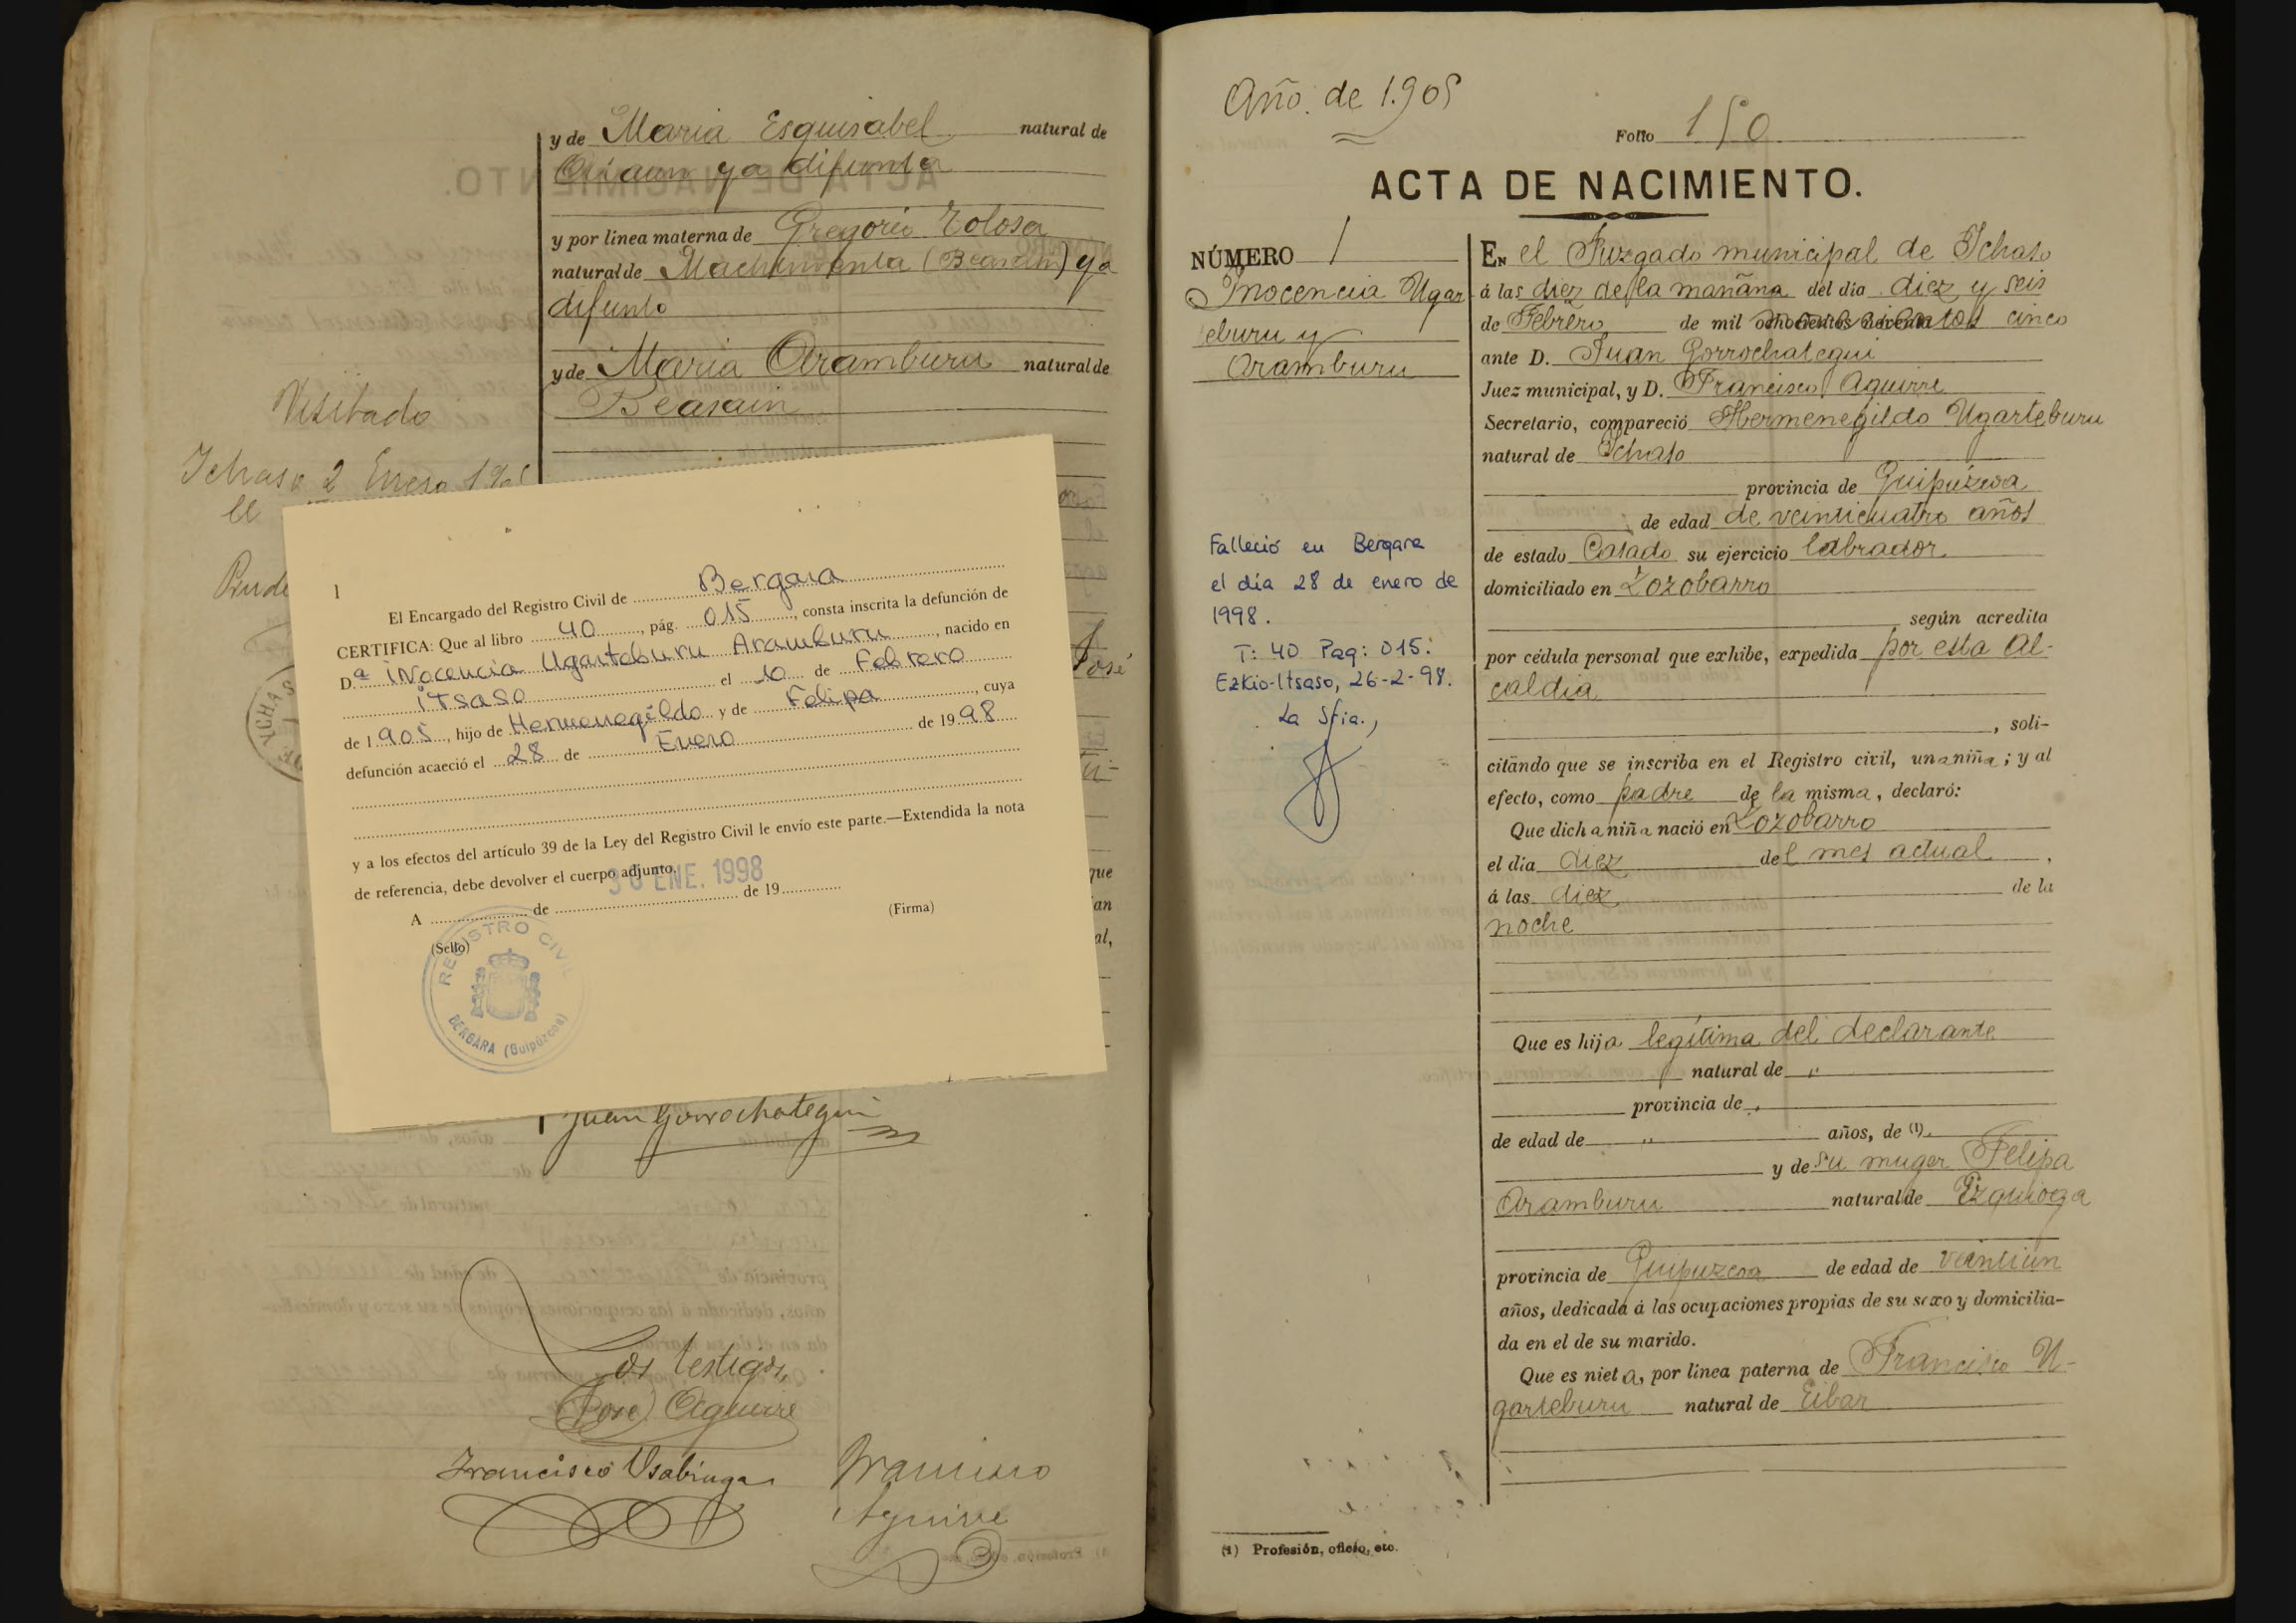 y de Maria Esquisabel natural de
Ataun ya difunta
y por linea materna de Gregorio Tolosa
natural de Machinventa (Beasain) ya
difunto
y de Maria Aramburu natural de
Beasain
Visitado
Ichaso 2 Enero 190
El
Prude
José
que
an
al,
1
El Encargado del Registro Civil de Bergara
CERTIFICA: Que al libro 40, pág. 015, consta inscrita la defunción de
D.ª iNocencia Ugarteburu Aramburu, nacido en
iTsaso el 10 de Febrero
de 1905, hijo de Hermenegildo y de Felipa, cuya
defunción acaeció el 28 de Enero de 1998
y a los efectos del artículo 39 de la Ley del Registro Civil le envío este parte.—Extendida la nota
de referencia, debe devolver el cuerpo adjunto.
30 ENE. 1998
A de de 19
(Firma)
(Sello)
REGISTRO CIVIL
BERGARA (Guipúzcoa)
Juan Gorrochategui
Los testigos,
José Aguirre
Francisco Usabiaga
Francisco
Aguirre
Año de 1.905
Folio 150
ACTA DE NACIMIENTO.
NÚMERO 1
Inocencia Ugar
teburu y
Aramburu
Falleció en Bergara
el día 28 de enero de
1998.
T: 40 Pag: 015.
Ezkio-Itsaso, 26-2-98.
La Sria.,
EN el Juzgado municipal de Ichaso
á las diez de la mañana del día diez y seis
de Febrero de mil novecientos cinco
ante D. Juan Gorrochategui
Juez municipal, y D. Francisco Aguirre
Secretario, compareció Hermenegildo Ugarteburu
natural de Ichaso
provincia de Guipúzcoa
de edad de veinticuatro años
de estado Casado su ejercicio labrador
domiciliado en Lozobarro
según acredita
por cédula personal que exhibe, expedida por esta Al-
caldia
, soli-
citando que se inscriba en el Registro civil, una niña; y al
efecto, como padre de la misma, declaró:
Que dicha niña nació en Lozobarro
el dia diez del mes actual,
á las diez de la
noche
Que es hija legítima del declarante
natural de "
provincia de "
de edad de " años, de (1)
y de su muger Felipa
Aramburu natural de Ezquioga
provincia de Guipuzcoa de edad de veintiun
años, dedicada á las ocupaciones propias de su sexo y domicilia-
da en el de su marido.
Que es nieta, por linea paterna de Francisco U-
garteburu natural de Eibar
(1) Profesión, oficio, etc.